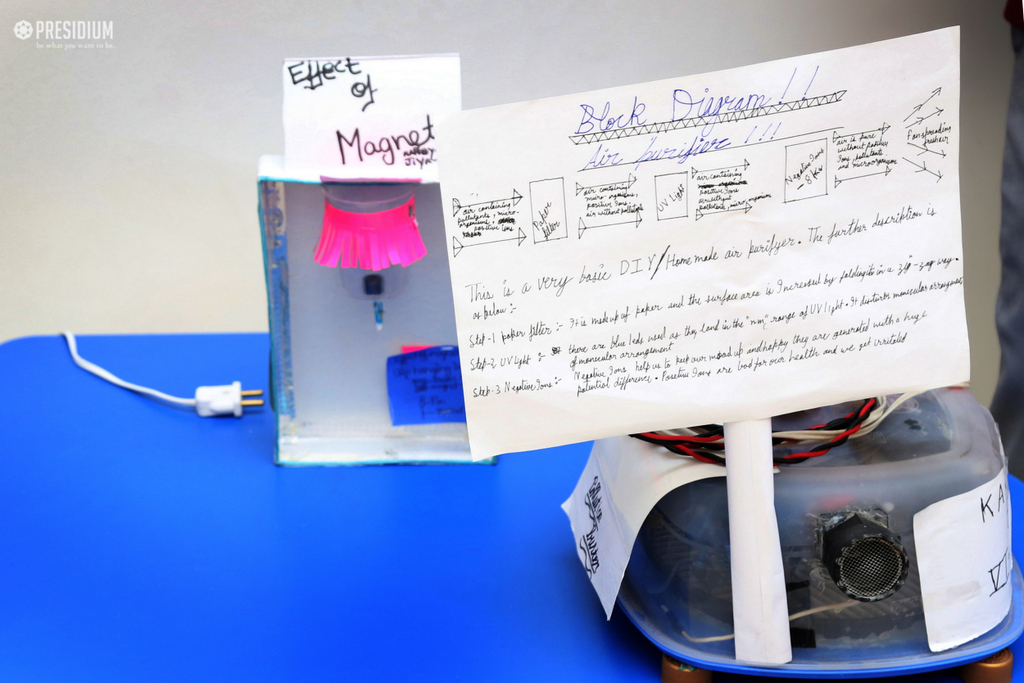 PRESIDIUM
be what you want to be.
Effect
of
Magnet
Block Diagram!!
Air purifier!!!
air containing
pollutants, micro
organisms,
positive ions
Paper
filter
air containing
micro organisms,
positive Ions
air without pollutants
UV light
air containing
positive Ions
air without
pollutants, micro, organism
Negative Ions
- 8 kw
air is pure
without positive
Ions, pollutants
and microorganisms
Fan spreading
fresh air
This is a very basic DIY/Homemade air purifyer. The further description is
as below:-
Step-1 paper filter:- It is made up of paper and the surface area is Increased by folding its in a zig-zag way.
Step-2 UV light:- there are blue leds used as they land in the "nm" range of UV light. It disturbs monecular arrangement
of monecular arrangement
Step-3 Negative Ions:- Negative Ions help us to keep our mood up and happy they are generated with a huge
potential difference. Positive Ions are bad for our health and we get irritated
KA
VI